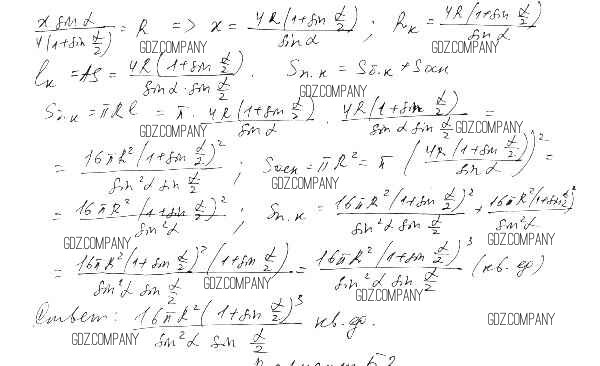 x sin α / 4(1+sin α/2) = R => x = 4R(1+sin α/2) / sin α ; Rк = 4R(1+sin α/2) / sin α
GDZ.COMPANY GDZ.COMPANY
lк = AS = 4R(1+sin α/2) / sin α · sin α/2 . Sп.к = Sб.к + Sосн
GDZ.COMPANY
Sп.к = πRl = π · 4R(1+sin α/2) / sin α · 4R(1+sin α/2) / sin α sin α/2 =
GDZ.COMPANY GDZ.COMPANY
= 16πR²(1+sin α/2)² / sin²α sin α/2 ; Sосн = πR² = π (4R(1+sin α/2) / sin α)² =
GDZ.COMPANY
= 16πR²(1+sin α/2)² / sin²α ; Sп.к = 16πR²(1+sin α/2)² / sin²α sin α/2 + 16πR²(1+sin α/2)² / sin²α
GDZ.COMPANY GDZ.COMPANY
= 16πR²(1+sin α/2)²(1+sin α/2) / sin²α sin α/2 = 16πR²(1+sin α/2)³ / sin²α sin α/2 (кв. ед)
GDZ.COMPANY GDZ.COMPANY
Ответ: 16πR²(1+sin α/2)³ / sin²α sin α/2 кв. ед.
GDZ.COMPANY GDZ.COMPANY